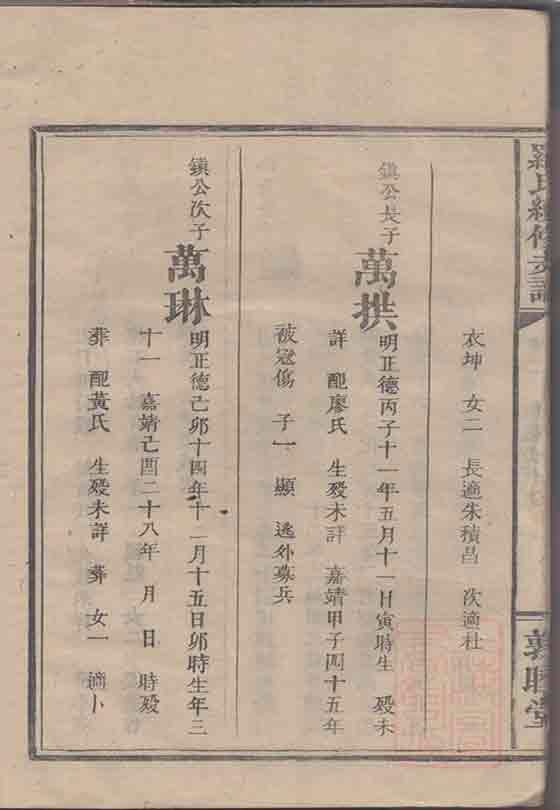 羅氏續修支譜
敦睦堂
衣坤 女二 長適朱積昌 次適杜
鎮公長子
萬拱
明正德丙子十一年五月十一日寅時生 殁未
詳 配廖氏 生殁未詳 嘉靖甲子四十五年
被寇傷 子一 顯 逃外募兵
鎮公次子
萬琳
明正德己卯十四年十一月十五日卯時生年三
十一 嘉靖己酉二十八年 月 日 時殁
葬 配黃氏 生殁未詳 葬 女一 適卜